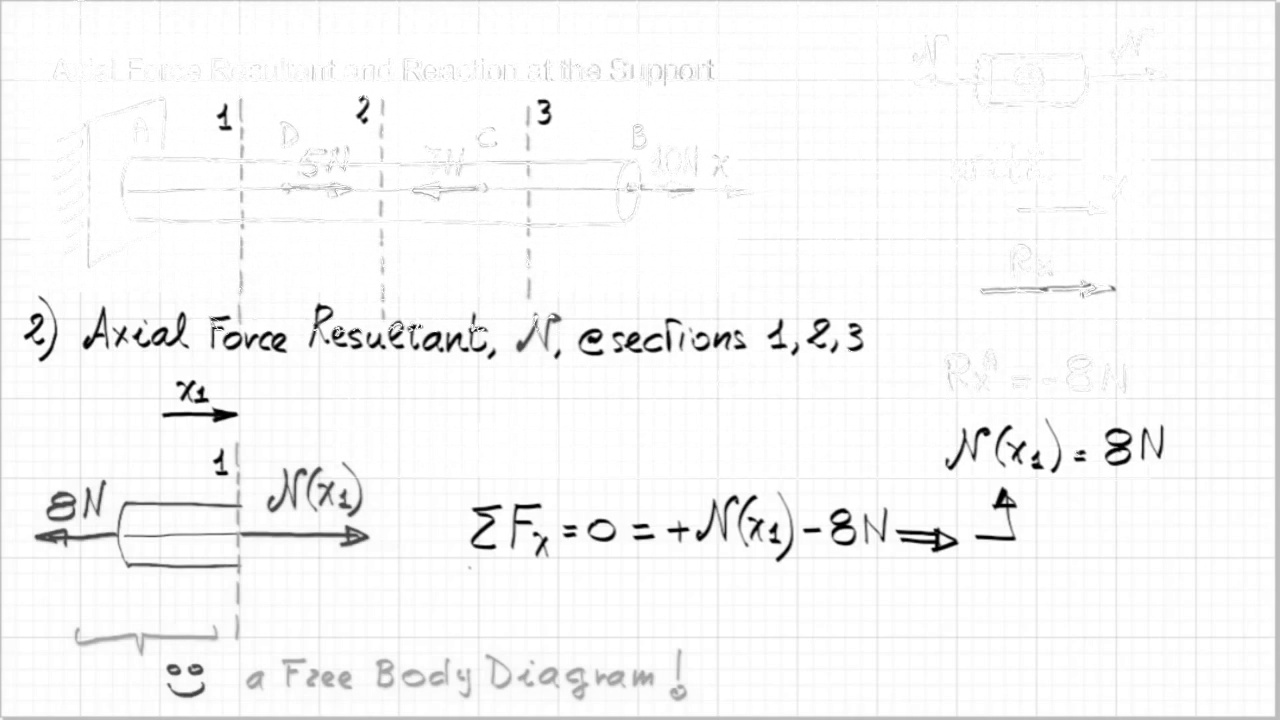 Axial Force Resultant and Reaction at the Support
1 2 3
A D C B
5N 10N x
N N
Rx
2) Axial Force Resultant, N, @ sections 1, 2, 3
RxA = -8N
x1
N(x1) = 8N
1
8N N(x1)
ΣFx = 0 = +N(x1) - 8N ⇒
a Free Body Diagram!